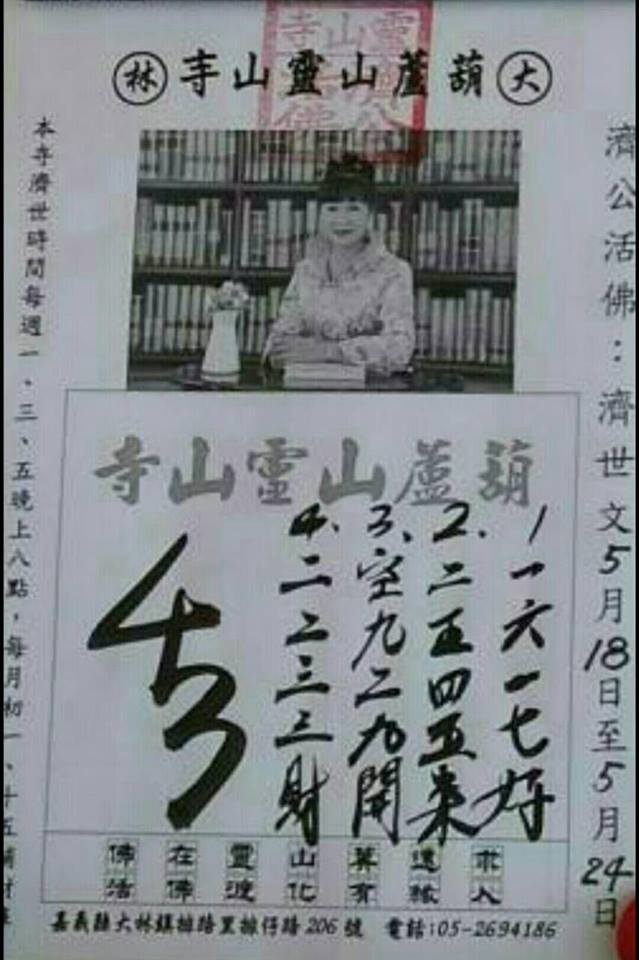 大 葫蘆山靈山寺 林
濟公活佛：濟世文5月18日至5月24日
葫蘆山靈山寺
1 一六一七好
2. 二五四五来
3、空九二九開
4、二二三三財
本寺濟世時間每週一、三、五晚上八點，每月初一、十五補財庫
嘉義縣大林鎮排路里排仔路206號 電話:05-2694186